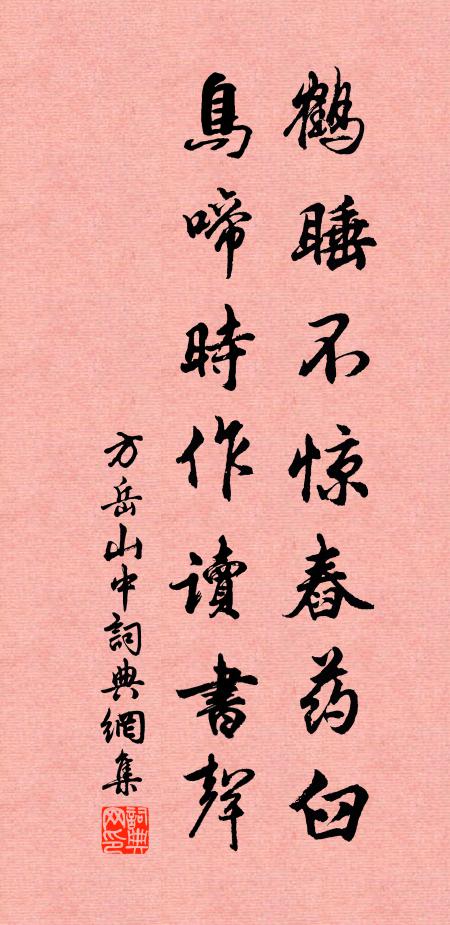 鶴睡不惊舂药臼
鳥啼時作讀書聲
方岳山中詞典網集
詞典网印